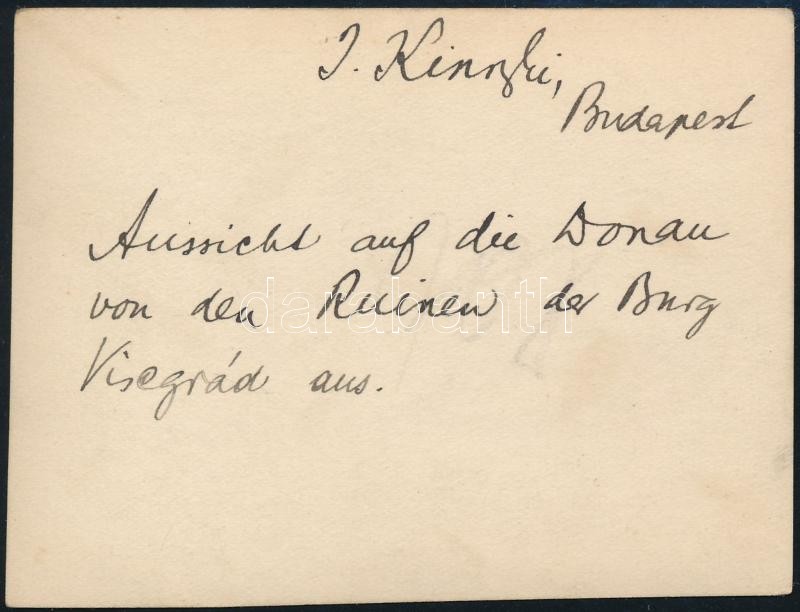 J. Kinszki,
Budapest
Aussicht auf die Donau
von den Ruinen der Burg
Visegrád aus.
darabanth